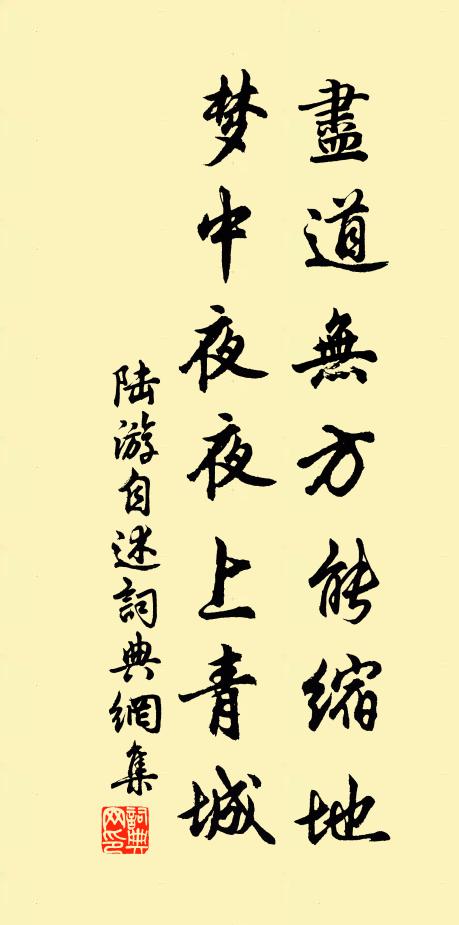 盡道無方能縮地
梦中夜夜上青城
陆游自述詞典網集
詞典網印